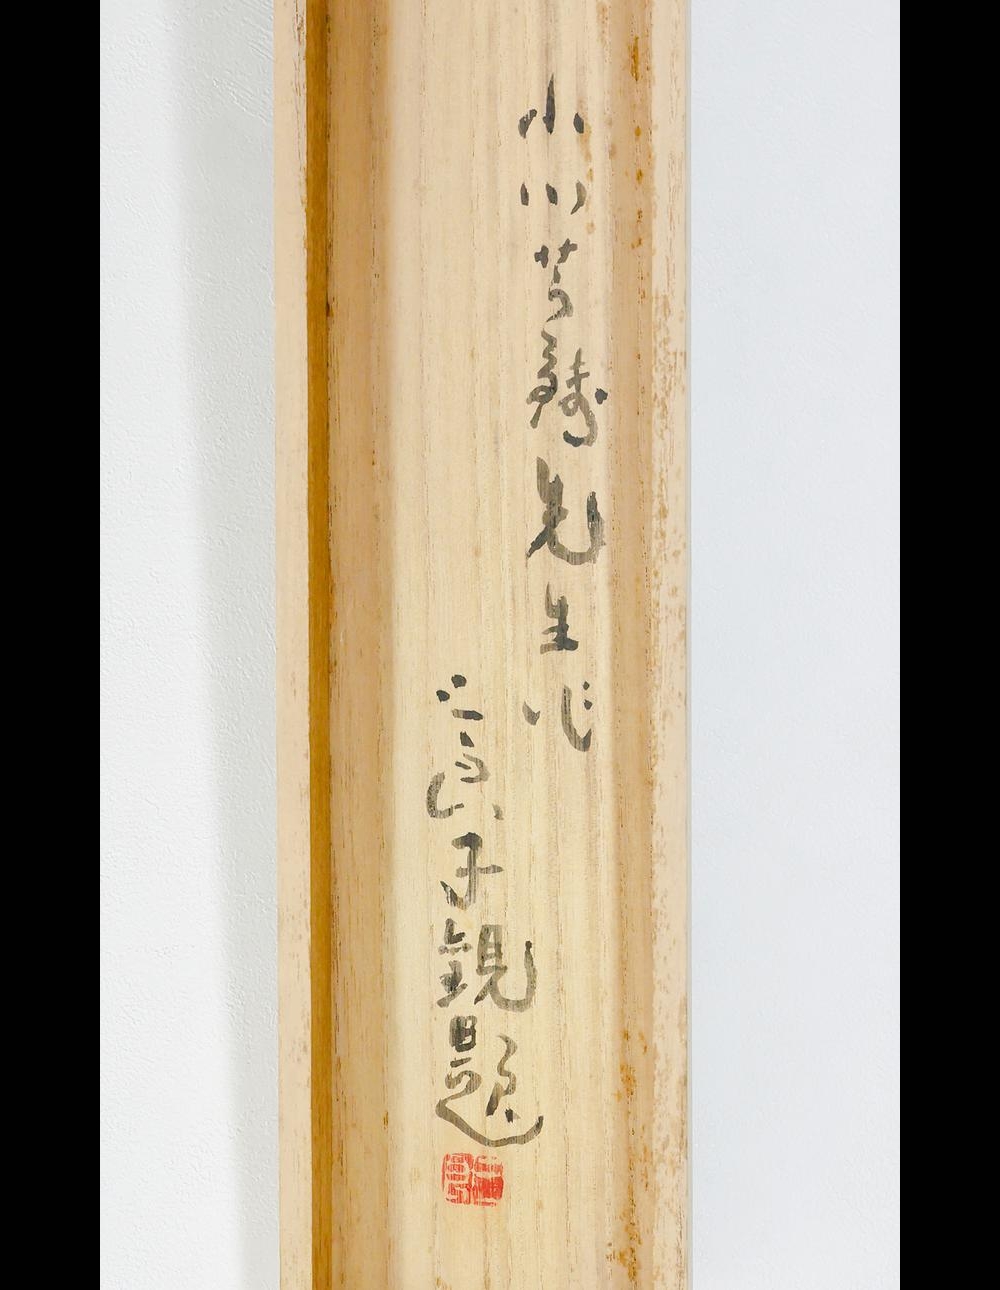 小川芋銭先生作
三良子観題